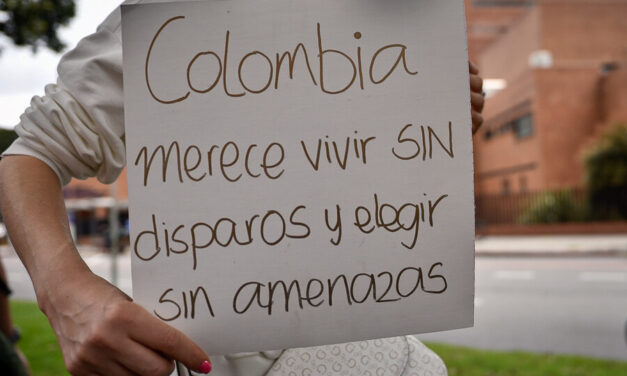 Colombia
merece vivir SIN
disparos y elegir
sin amenazas